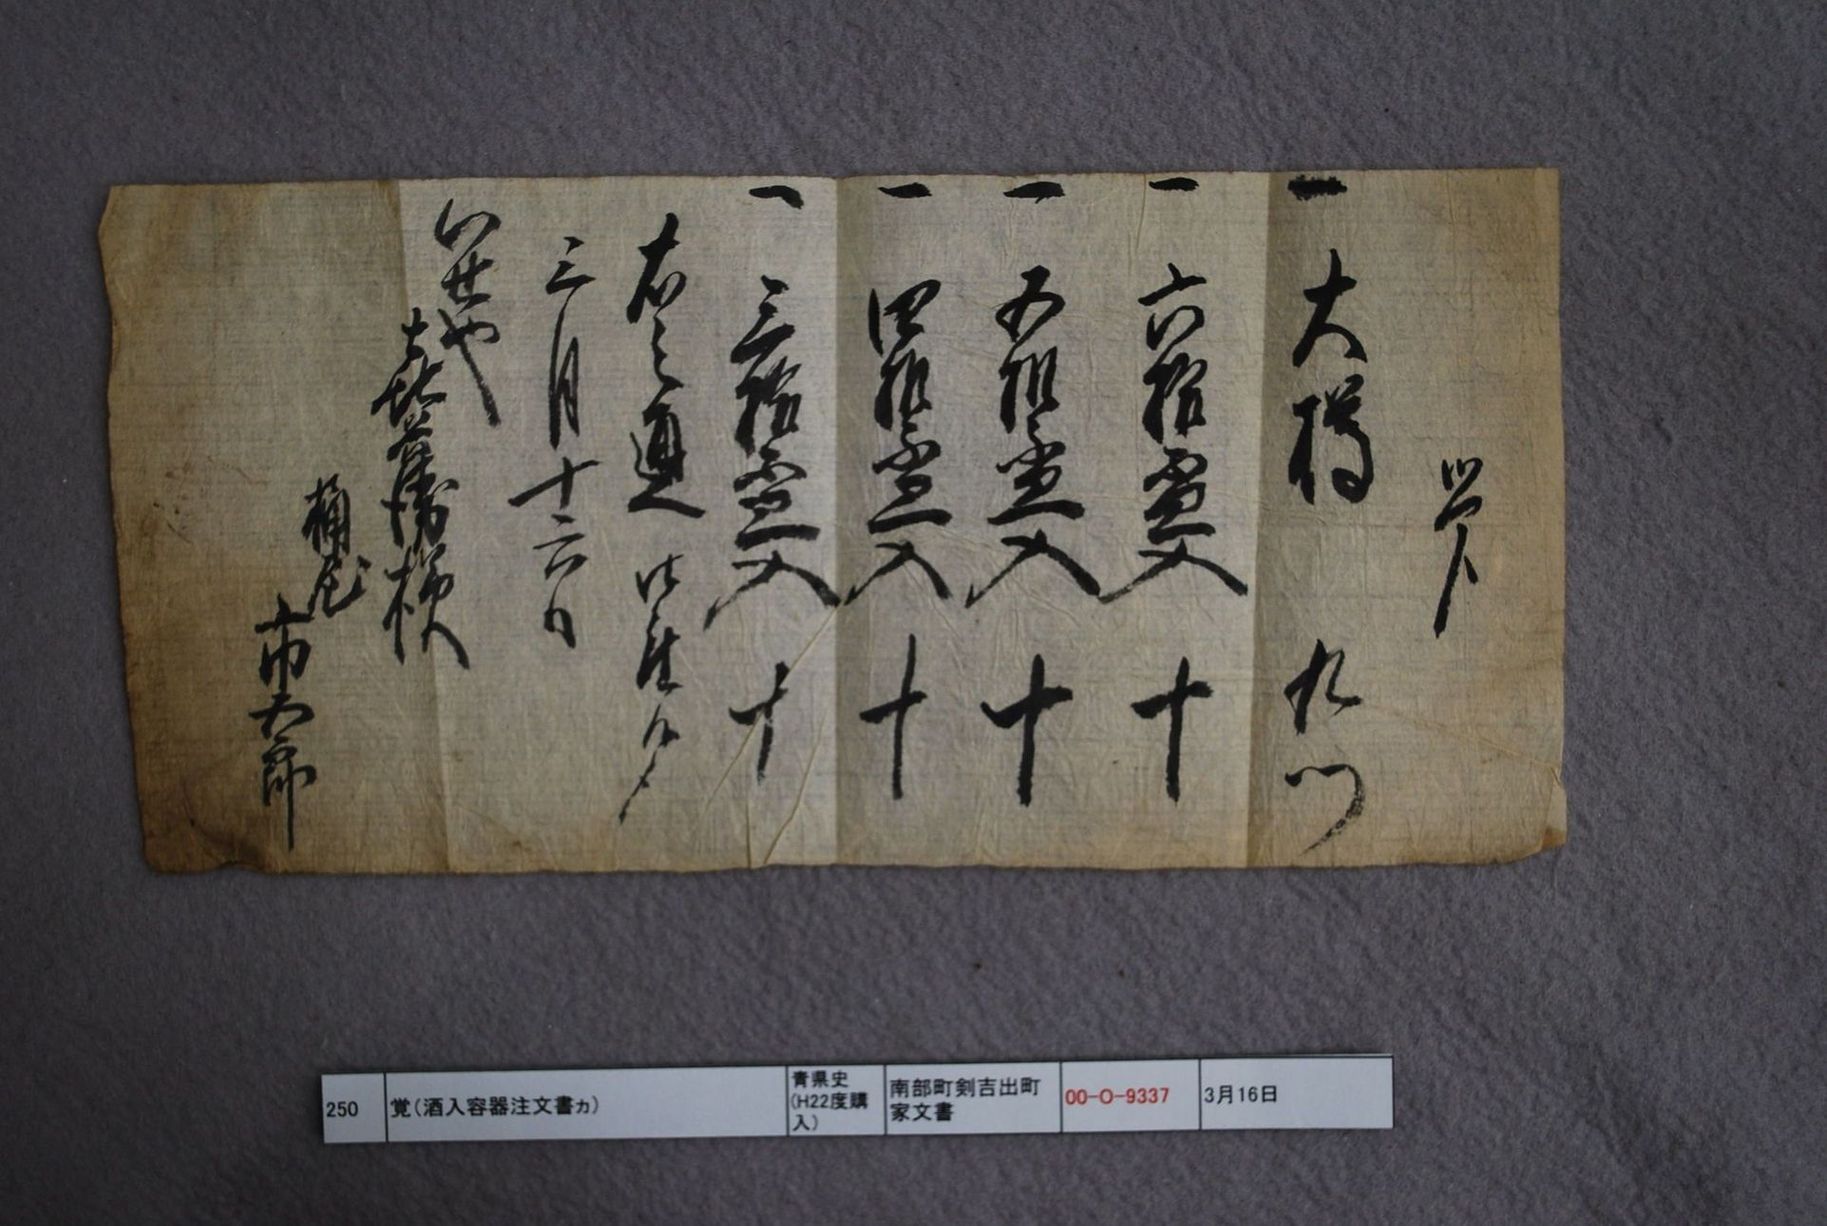 覚
一 大樽 九ツ
一 六拾盃入 十
一 五拾盃入 十
一 四拾盃入 十
一 三拾盃入 十
右之通
三月十六日
いせや
様
桶屋
市太郎
250 覚(酒入容器注文書カ) 青県史(H22度購入) 南部町剣吉出町家文書 00-O-9337 3月16日